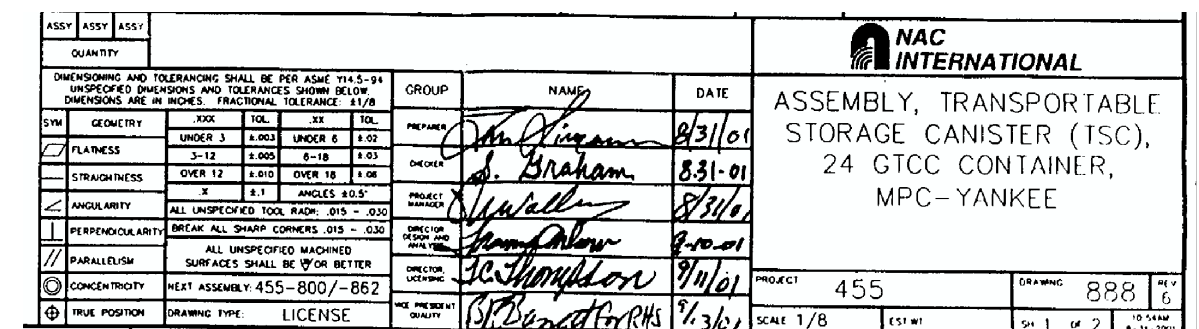 ASSY ASSY ASSY
QUANTITY
NAC
INTERNATIONAL
DIMENSIONING AND TOLERANCING SHALL BE PER ASME Y14.5-94
UNSPECIFIED DIMENSIONS AND TOLERANCES SHOWN BELOW.
DIMENSIONS ARE IN INCHES. FRACTIONAL TOLERANCE: ±1/8
SYM GEOMETRY .XXX TOL. .XX TOL.
UNDER 3 ±.003 UNDER 6 ±.02
FLATNESS
3-12 ±.005 6-18 ±.03
STRAIGHTNESS
OVER 12 ±.010 OVER 18 ±.06
.X ±.1 ANGLES ±0.5°
ANGULARITY
ALL UNSPECIFIED TOOL RADII: .015 - .030
PERPENDICULARITY
BREAK ALL SHARP CORNERS .015 - .030
ALL UNSPECIFIED MACHINED
SURFACES SHALL BE OR BETTER
PARALLELISM
CONCENTRICITY
NEXT ASSEMBLY: 455-800/-862
TRUE POSITION
DRAWING TYPE: LICENSE
GROUP NAME DATE
PREPARER 8/31/01
CHECKER S. Graham 8-31-01
PROJECT
MANAGER
8/31/01
DIRECTOR
DESIGN AND
ANALYSIS
9-10-01
DIRECTOR,
LICENSING
TC Thompson 9/11/01
VICE PRESIDENT
QUALITY
For RHS
ASSEMBLY, TRANSPORTABLE
STORAGE CANISTER (TSC),
24 GTCC CONTAINER,
MPC-YANKEE
PROJECT 455
DRAWING 888
REV 6
SCALE 1/8 EST WT SH 1 OF 2 10:54AM